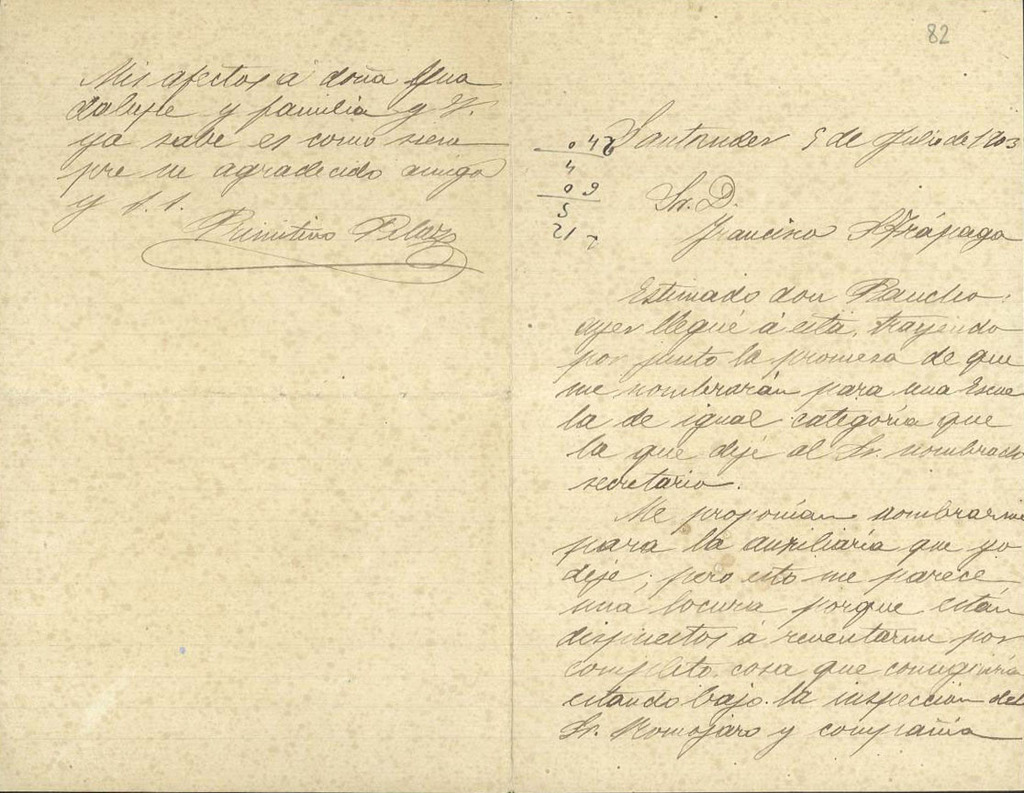 Mis afectos a doña Gua
dalupe y familia y V.
ya sabe es como siem
pre su agradecido amigo
y s. s.
Primitivo Pelaz
82
Santander 5 de Julio de 1903
Sr. D.
Francisco S. Trápaga
Estimado don Pancho:
ayer llegué á esta, trayendo
por junto la promesa de que
me nombrarán para una Escue
la de igual categoría que
la que dejé al Sr. nombrado
secretario.
Me proponían nombrarme
para la auxiliaría que yo
dejé; pero esto me parece
una locura porque están
dispuestos á reventarme por
completo, cosa que
estando bajo la inspección del
Sr. Romojaro y compañía